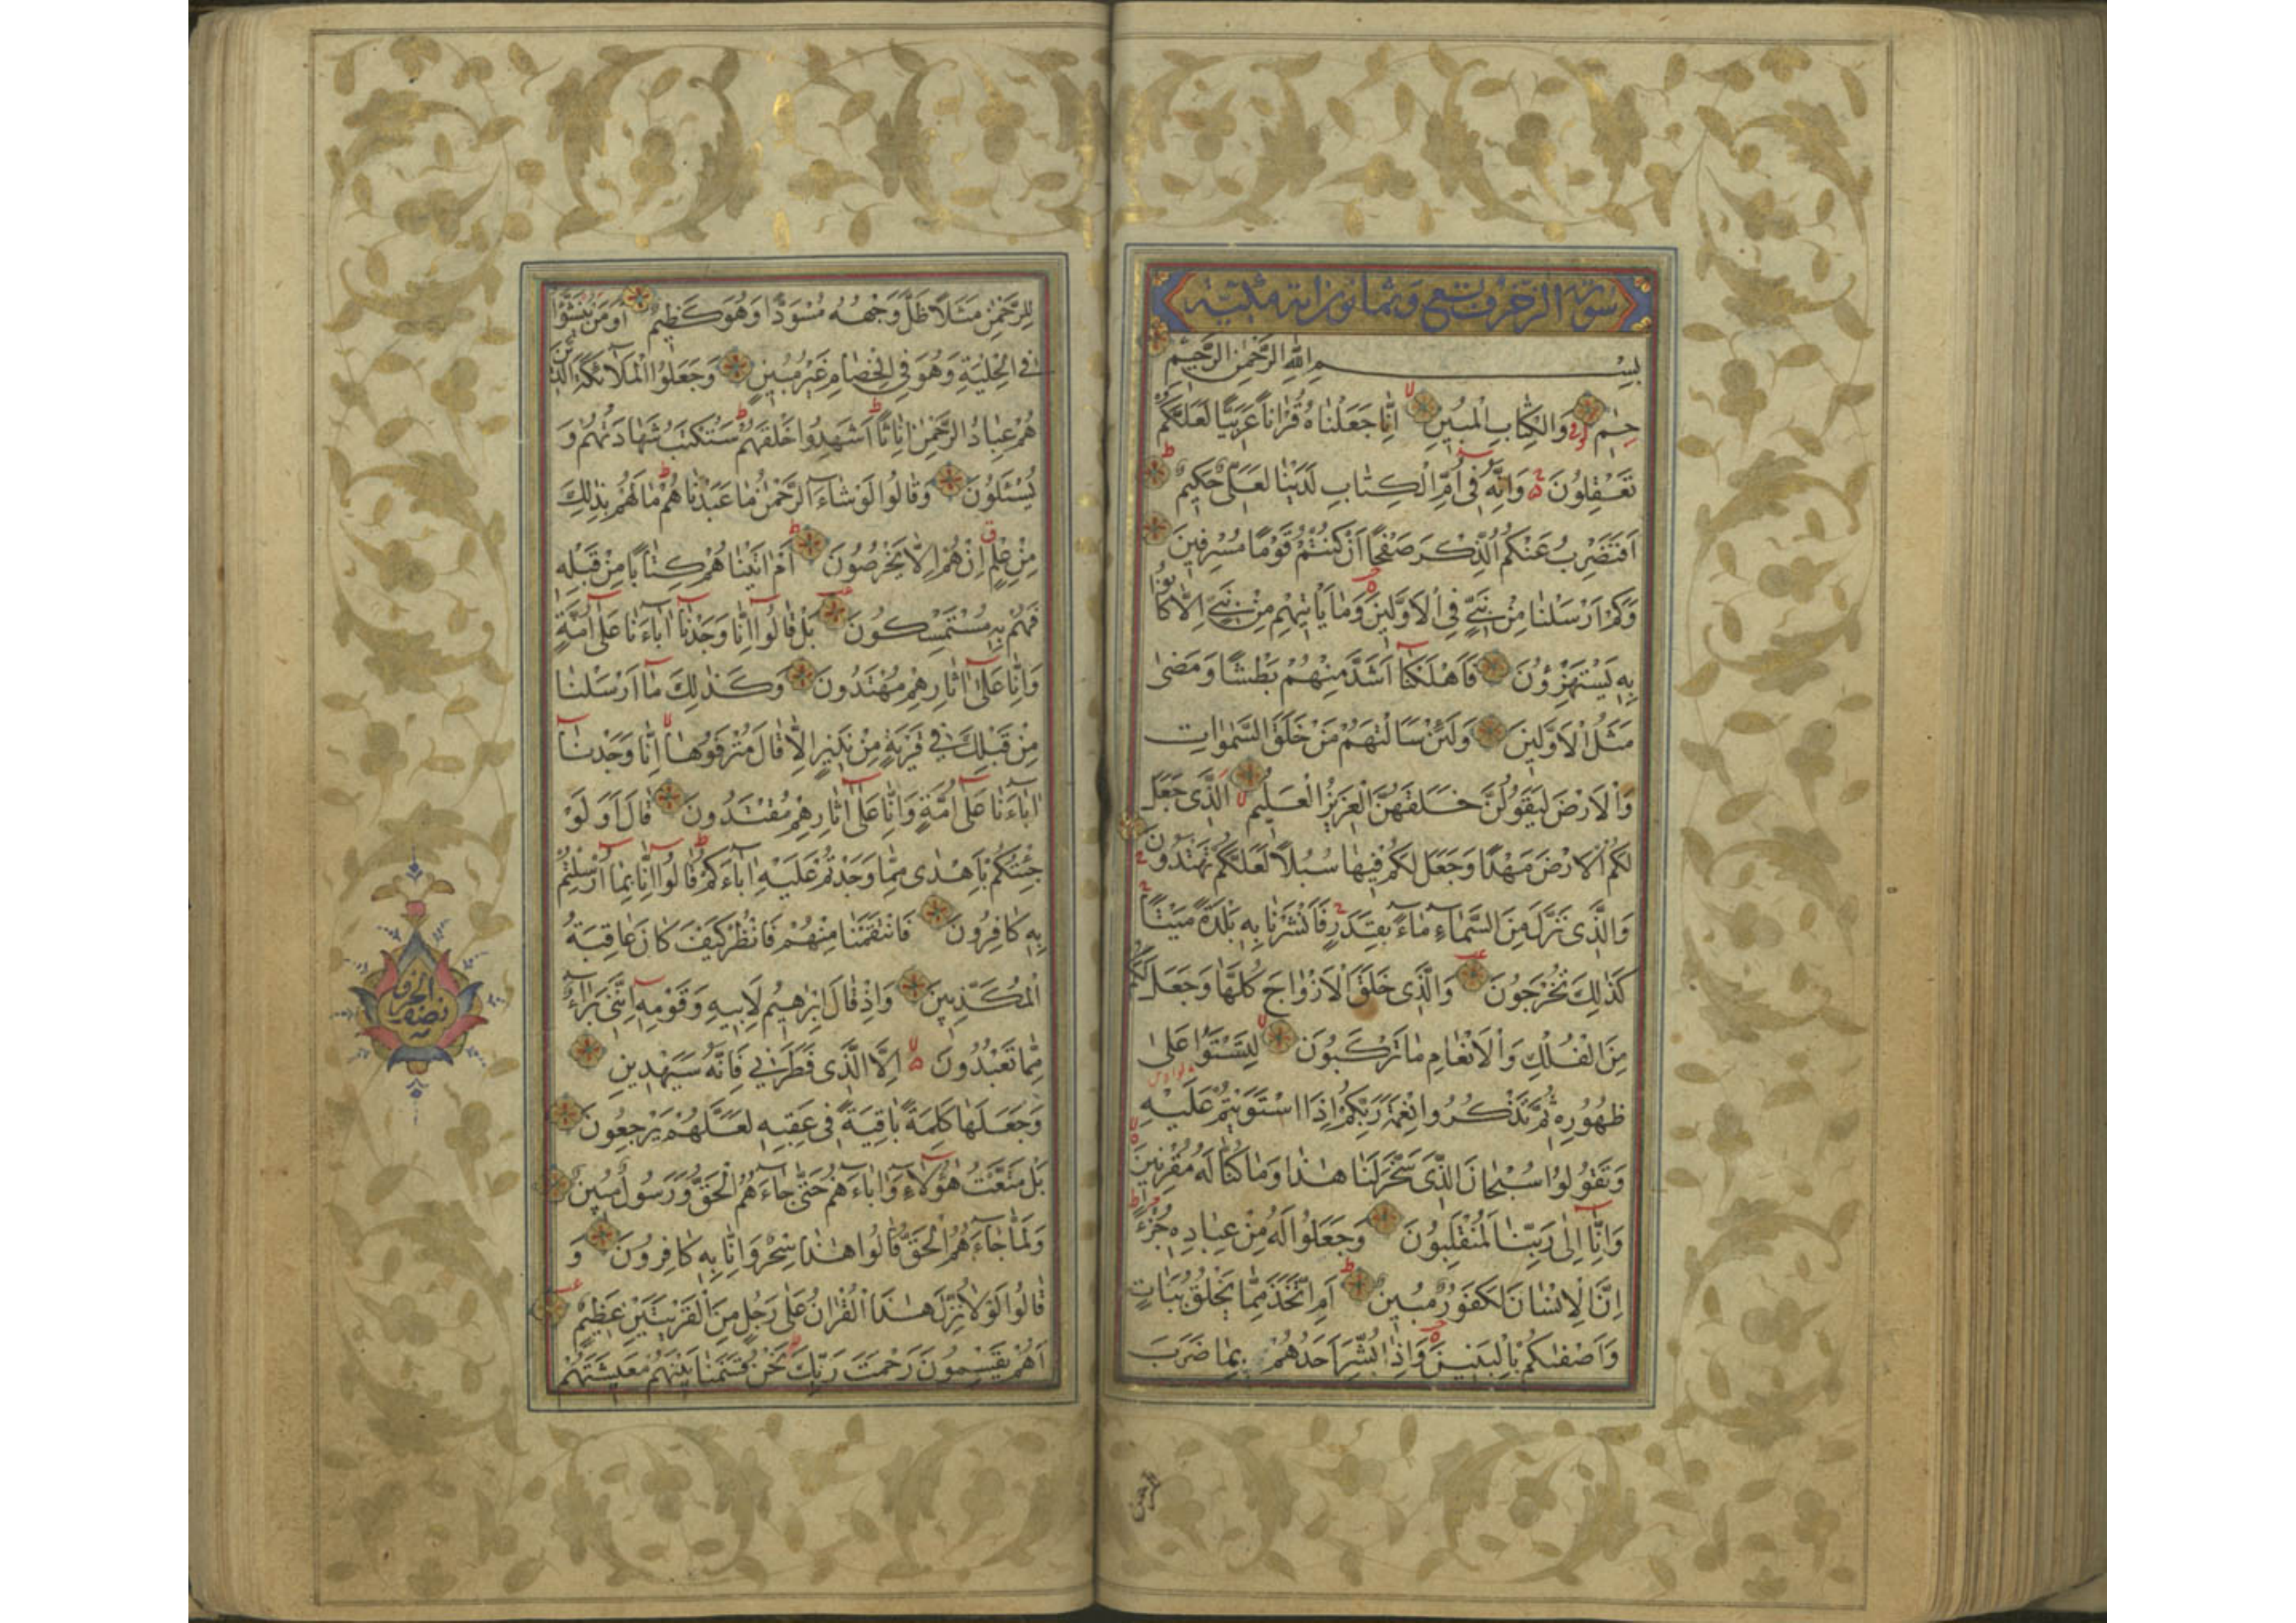 سورة الزخرف تسع وثمانون آية مكية
بِسْمِ اللّٰهِ الرَّحْمٰنِ الرَّحِيمِ
حٰمٓ وَالْكِتَابِ الْمُبِينِ اِنَّا جَعَلْنَاهُ قُرْاٰنًا عَرَبِيًّا لَعَلَّكُمْ
تَعْقِلُونَ وَاِنَّهُ فِى اُمِّ الْكِتَابِ لَدَيْنَا لَعَلِىٌّ حَكِيمٌ
اَفَنَضْرِبُ عَنْكُمُ الذِّكْرَ صَفْحًا اَنْ كُنْتُمْ قَوْمًا مُسْرِفِينَ
وَكَمْ اَرْسَلْنَا مِنْ نَبِىٍّ فِى الْاَوَّلِينَ وَمَا يَاْتِيهِمْ مِنْ نَبِىٍّ اِلَّا كَانُوا
بِهِ يَسْتَهْزِؤُنَ فَاَهْلَكْنَا اَشَدَّ مِنْهُمْ بَطْشًا وَمَضٰى
مَثَلُ الْاَوَّلِينَ وَلَئِنْ سَاَلْتَهُمْ مَنْ خَلَقَ السَّمٰوَاتِ
وَالْاَرْضَ لَيَقُولُنَّ خَلَقَهُنَّ الْعَزِيزُ الْعَلِيمُ اَلَّذِى جَعَلَ
لَكُمُ الْاَرْضَ مَهْدًا وَجَعَلَ لَكُمْ فِيهَا سُبُلًا لَعَلَّكُمْ تَهْتَدُونَ
وَالَّذِى نَزَّلَ مِنَ السَّمَاءِ مَاءً بِقَدَرٍ فَاَنْشَرْنَا بِهِ بَلْدَةً مَيْتًا
كَذٰلِكَ تُخْرَجُونَ وَالَّذِى خَلَقَ الْاَزْوَاجَ كُلَّهَا وَجَعَلَ لَكُمْ
مِنَ الْفُلْكِ وَالْاَنْعَامِ مَا تَرْكَبُونَ لِتَسْتَوُا عَلٰى
ظُهُورِهِ ثُمَّ تَذْكُرُوا نِعْمَةَ رَبِّكُمْ اِذَا اسْتَوَيْتُمْ عَلَيْهِ
وَتَقُولُوا سُبْحَانَ الَّذِى سَخَّرَ لَنَا هٰذَا وَمَا كُنَّا لَهُ مُقْرِنِينَ
وَاِنَّا اِلٰى رَبِّنَا لَمُنْقَلِبُونَ وَجَعَلُوا لَهُ مِنْ عِبَادِهِ جُزْءًا
اِنَّ الْاِنْسَانَ لَكَفُورٌ مُبِينٌ اَمِ اتَّخَذَ مِمَّا يَخْلُقُ بَنَاتٍ
وَاَصْفٰيكُمْ بِالْبَنِينَ وَاِذَا بُشِّرَ اَحَدُهُمْ بِمَا ضَرَبَ
لِلرَّحْمٰنِ مَثَلًا ظَلَّ وَجْهُهُ مُسْوَدًّا وَهُوَ كَظِيمٌ اَوَمَنْ يُنَشَّؤُا
فِى الْحِلْيَةِ وَهُوَ فِى الْخِصَامِ غَيْرُ مُبِينٍ وَجَعَلُوا الْمَلَائِكَةَ الَّذِينَ
هُمْ عِبَادُ الرَّحْمٰنِ اِنَاثًا اَشَهِدُوا خَلْقَهُمْ سَتُكْتَبُ شَهَادَتُهُمْ وَ
يُسْئَلُونَ وَقَالُوا لَوْ شَاءَ الرَّحْمٰنُ مَا عَبَدْنَاهُمْ مَا لَهُمْ بِذٰلِكَ
مِنْ عِلْمٍ اِنْ هُمْ اِلَّا يَخْرُصُونَ اَمْ اٰتَيْنَاهُمْ كِتَابًا مِنْ قَبْلِهِ
فَهُمْ بِهِ مُسْتَمْسِكُونَ بَلْ قَالُوا اِنَّا وَجَدْنَا اٰبَاءَنَا عَلٰى اُمَّةٍ
وَاِنَّا عَلٰى اٰثَارِهِمْ مُهْتَدُونَ وَكَذٰلِكَ مَا اَرْسَلْنَا
مِنْ قَبْلِكَ فِى قَرْيَةٍ مِنْ نَذِيرٍ اِلَّا قَالَ مُتْرَفُوهَا اِنَّا وَجَدْنَا
اٰبَاءَنَا عَلٰى اُمَّةٍ وَاِنَّا عَلٰى اٰثَارِهِمْ مُقْتَدُونَ قَالَ اَوَلَوْ
جِئْتُكُمْ بِاَهْدٰى مِمَّا وَجَدْتُمْ عَلَيْهِ اٰبَاءَكُمْ قَالُوا اِنَّا بِمَا اُرْسِلْتُمْ
بِهِ كَافِرُونَ فَانْتَقَمْنَا مِنْهُمْ فَانْظُرْ كَيْفَ كَانَ عَاقِبَةُ
الْمُكَذِّبِينَ وَاِذْ قَالَ اِبْرٰهِيمُ لِاَبِيهِ وَقَوْمِهِ اِنَّنِى بَرَاءٌ
مِمَّا تَعْبُدُونَ اِلَّا الَّذِى فَطَرَنِى فَاِنَّهُ سَيَهْدِينِ
وَجَعَلَهَا كَلِمَةً بَاقِيَةً فِى عَقِبِهِ لَعَلَّهُمْ يَرْجِعُونَ
بَلْ مَتَّعْتُ هٰؤُلَاءِ وَاٰبَاءَهُمْ حَتّٰى جَاءَهُمُ الْحَقُّ وَرَسُولٌ مُبِينٌ
وَلَمَّا جَاءَهُمُ الْحَقُّ قَالُوا هٰذَا سِحْرٌ وَاِنَّا بِهِ كَافِرُونَ وَ
قَالُوا لَوْلَا نُزِّلَ هٰذَا الْقُرْاٰنُ عَلٰى رَجُلٍ مِنَ الْقَرْيَتَيْنِ عَظِيمٍ
اَهُمْ يَقْسِمُونَ رَحْمَتَ رَبِّكَ نَحْنُ قَسَمْنَا بَيْنَهُمْ مَعِيشَتَهُمْ
نصف الجزء